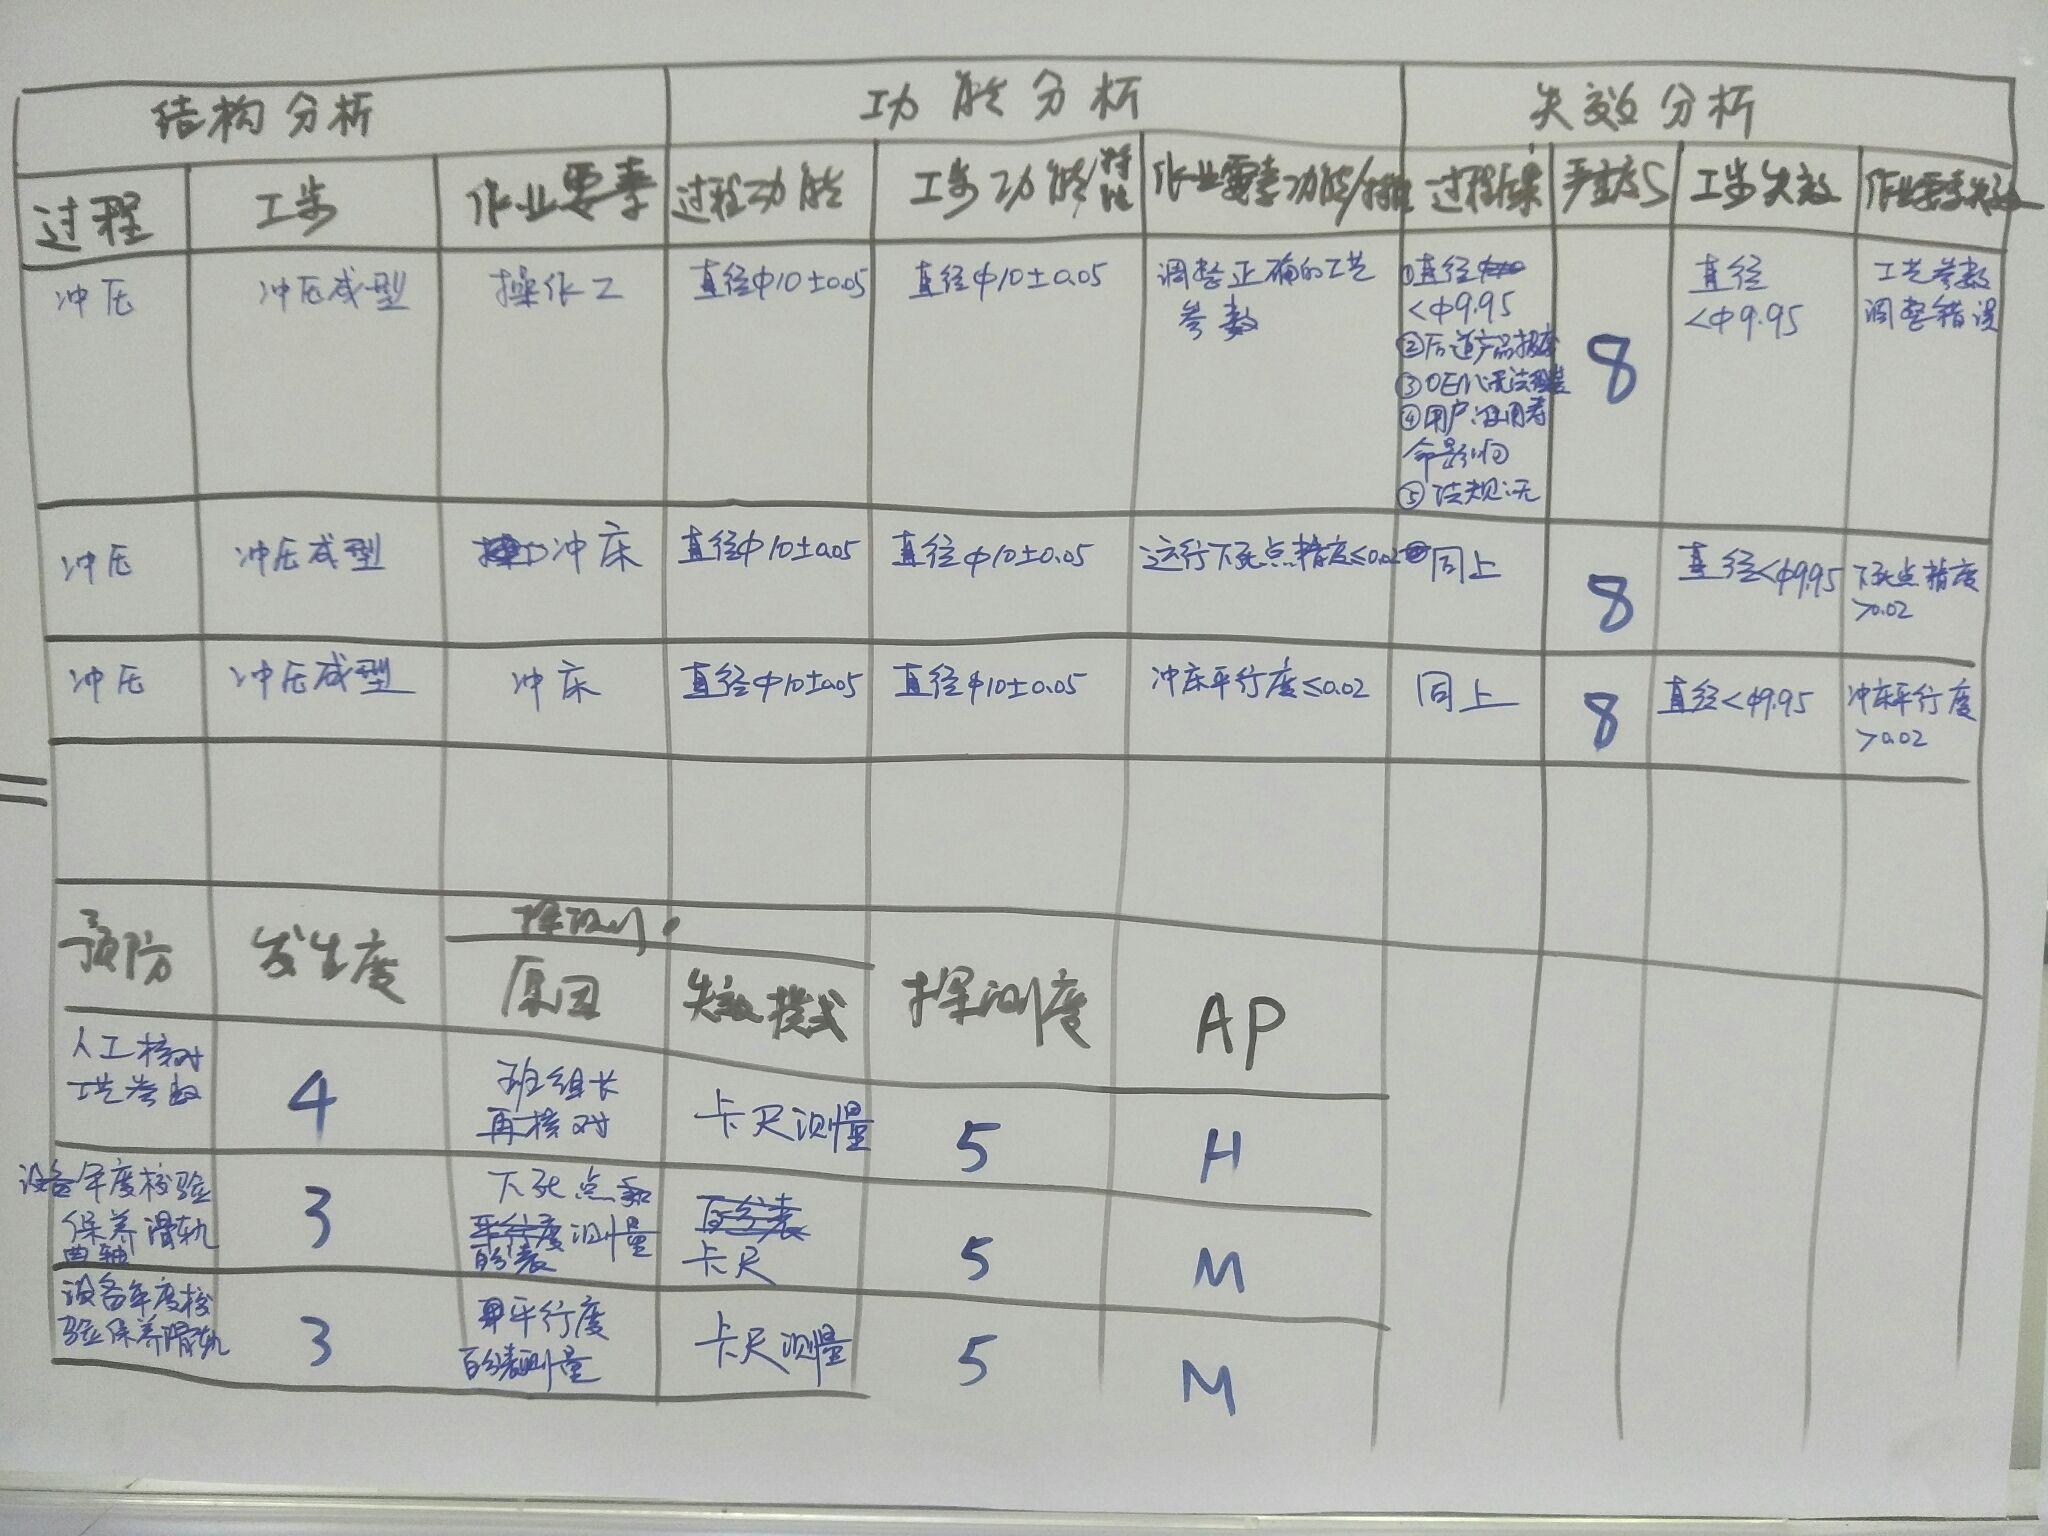 结构分析 功能分析 失效分析
过程 工步 作业要素 过程功能 工步功能/特性 作业要素功能/特性 过程后果 严重度S 工步失效 作业要素失效
冲压 冲压成型 操作工 直径Φ10±0.05 直径Φ10±0.05 调整正确的工艺 ①直径 直径 工艺参数
参数 <Φ9.95 8 <Φ9.95 调整错误
②后道产品报废
③OEM:无法
④用户:使用寿
命影响
⑤法规:无
冲压 冲压成型 冲床 直径Φ10±0.05 直径Φ10±0.05 运行下死点精度≤0.02 同上 8 直径<Φ9.95 下死点精度
>0.02
冲压 冲压成型 冲床 直径Φ10±0.05 直径Φ10±0.05 冲床平行度≤0.02 同上 8 直径<Φ9.95 冲床平行度
>0.02
探测
预防 发生度 原因 失效模式 探测度 AP
人工核对 4 班组长 卡尺测量 5 H
工艺参数 再核对
设备年度校验 3 下死点 卡尺 5 M
保养滑轨 测量
曲轴 百分表
设备年度校 3 平行度 卡尺测量 5 M
验保养滑轨 百分表测量